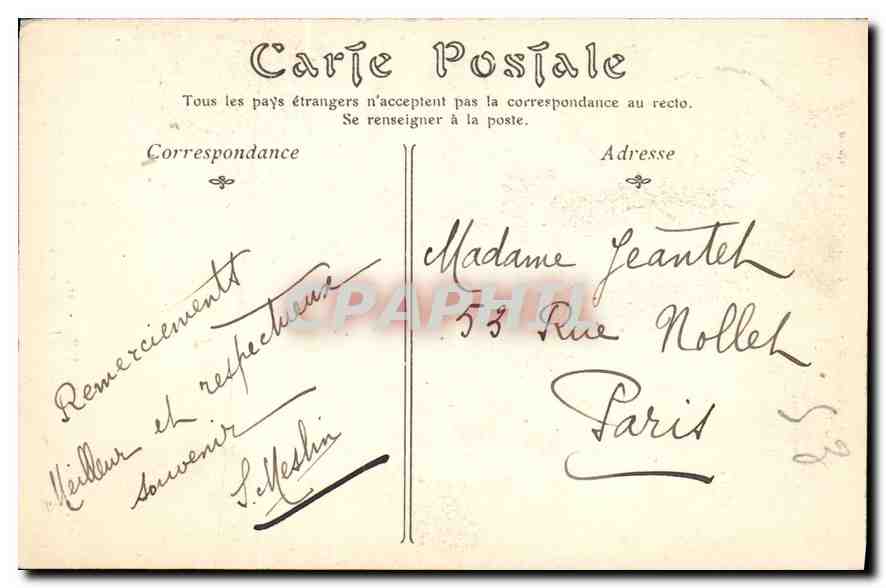 Carte Postale
Tous les pays étrangers n'acceptent pas la correspondance au recto.
Se renseigner à la poste.
Correspondance
Adresse
Remerciements
Meilleur et respectueux
souvenir
S. Meslin
Madame Jeantet
53 Rue Nollet
Paris
CPAPHIL